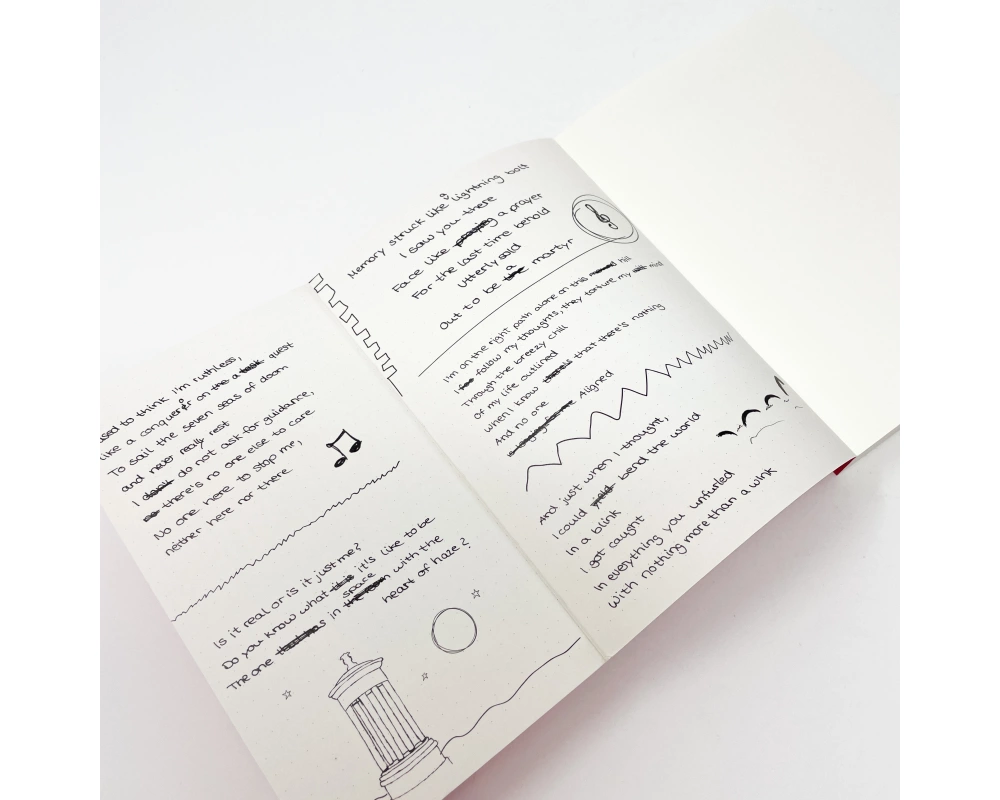 used to think I'm ruthless,
like a conqueror on the a quest
To sail the seven seas of doom
and never really rest
I do not ask for guidance,
there's no one else to care
No one here to stop me,
neither here nor there
Is it real or is it just me?
Do you know what it's like to be
The one in space with the
heart of haze?
Memory struck like a lightning bolt
I saw you there
Face like a prayer
For the last time behold
Utterly sold
Out to be a martyr
I'm on the right path alone on this hill
I follow my thoughts, they torture my mind
Through the breezy chill
Of my life outlined
When I know that there's nothing
And no one
Aligned
And just when I thought,
I could bend the world
In a blink
I got caught
In everything you unfurled
With nothing more than a wink